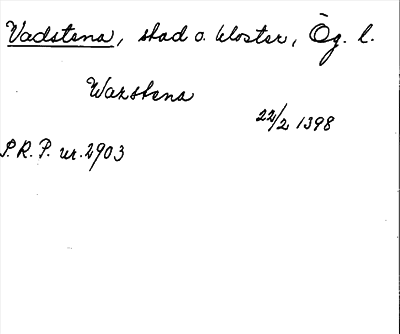 Vadstena, stad o. kloster, Ög. l.
Wazstena
22/2 1398
S.R.P. nr. 2903